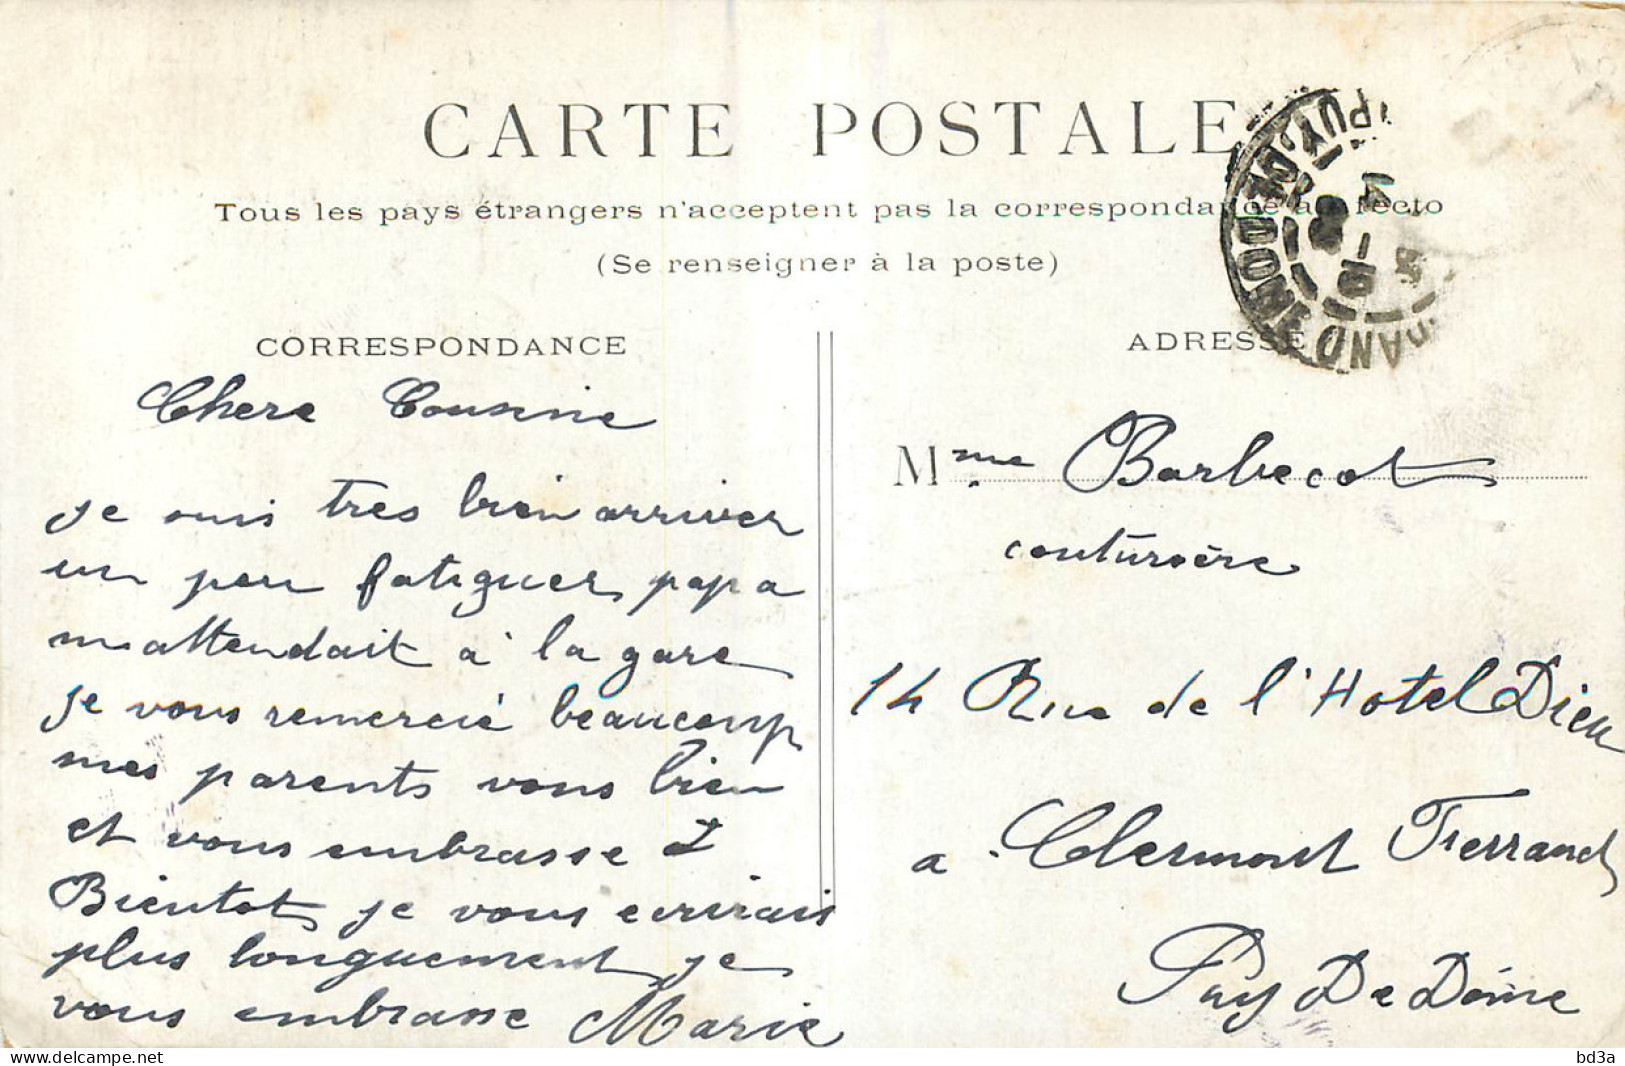 CARTE POSTALE
Tous les pays étrangers n'acceptent pas la correspondance au recto
(Se renseigner à la poste)
CORRESPONDANCE
Chere Cousine
je suis tres bien arriver
un peu fatiguer papa
m'attendait à la gare
je vous remercie beaucoup
mes parents vous bien
et vous embrasse
Bientot je vous ecrirais
plus longuement je
vous embrasse Marie
ADRESSE
Mme Barbecot
couturière
14 Rue de l'Hotel Dieu
a Clermont Ferrand
Puy De Dôme
PUY DE DOME
14
-10
RAND
www.delcampe.net
bd3a